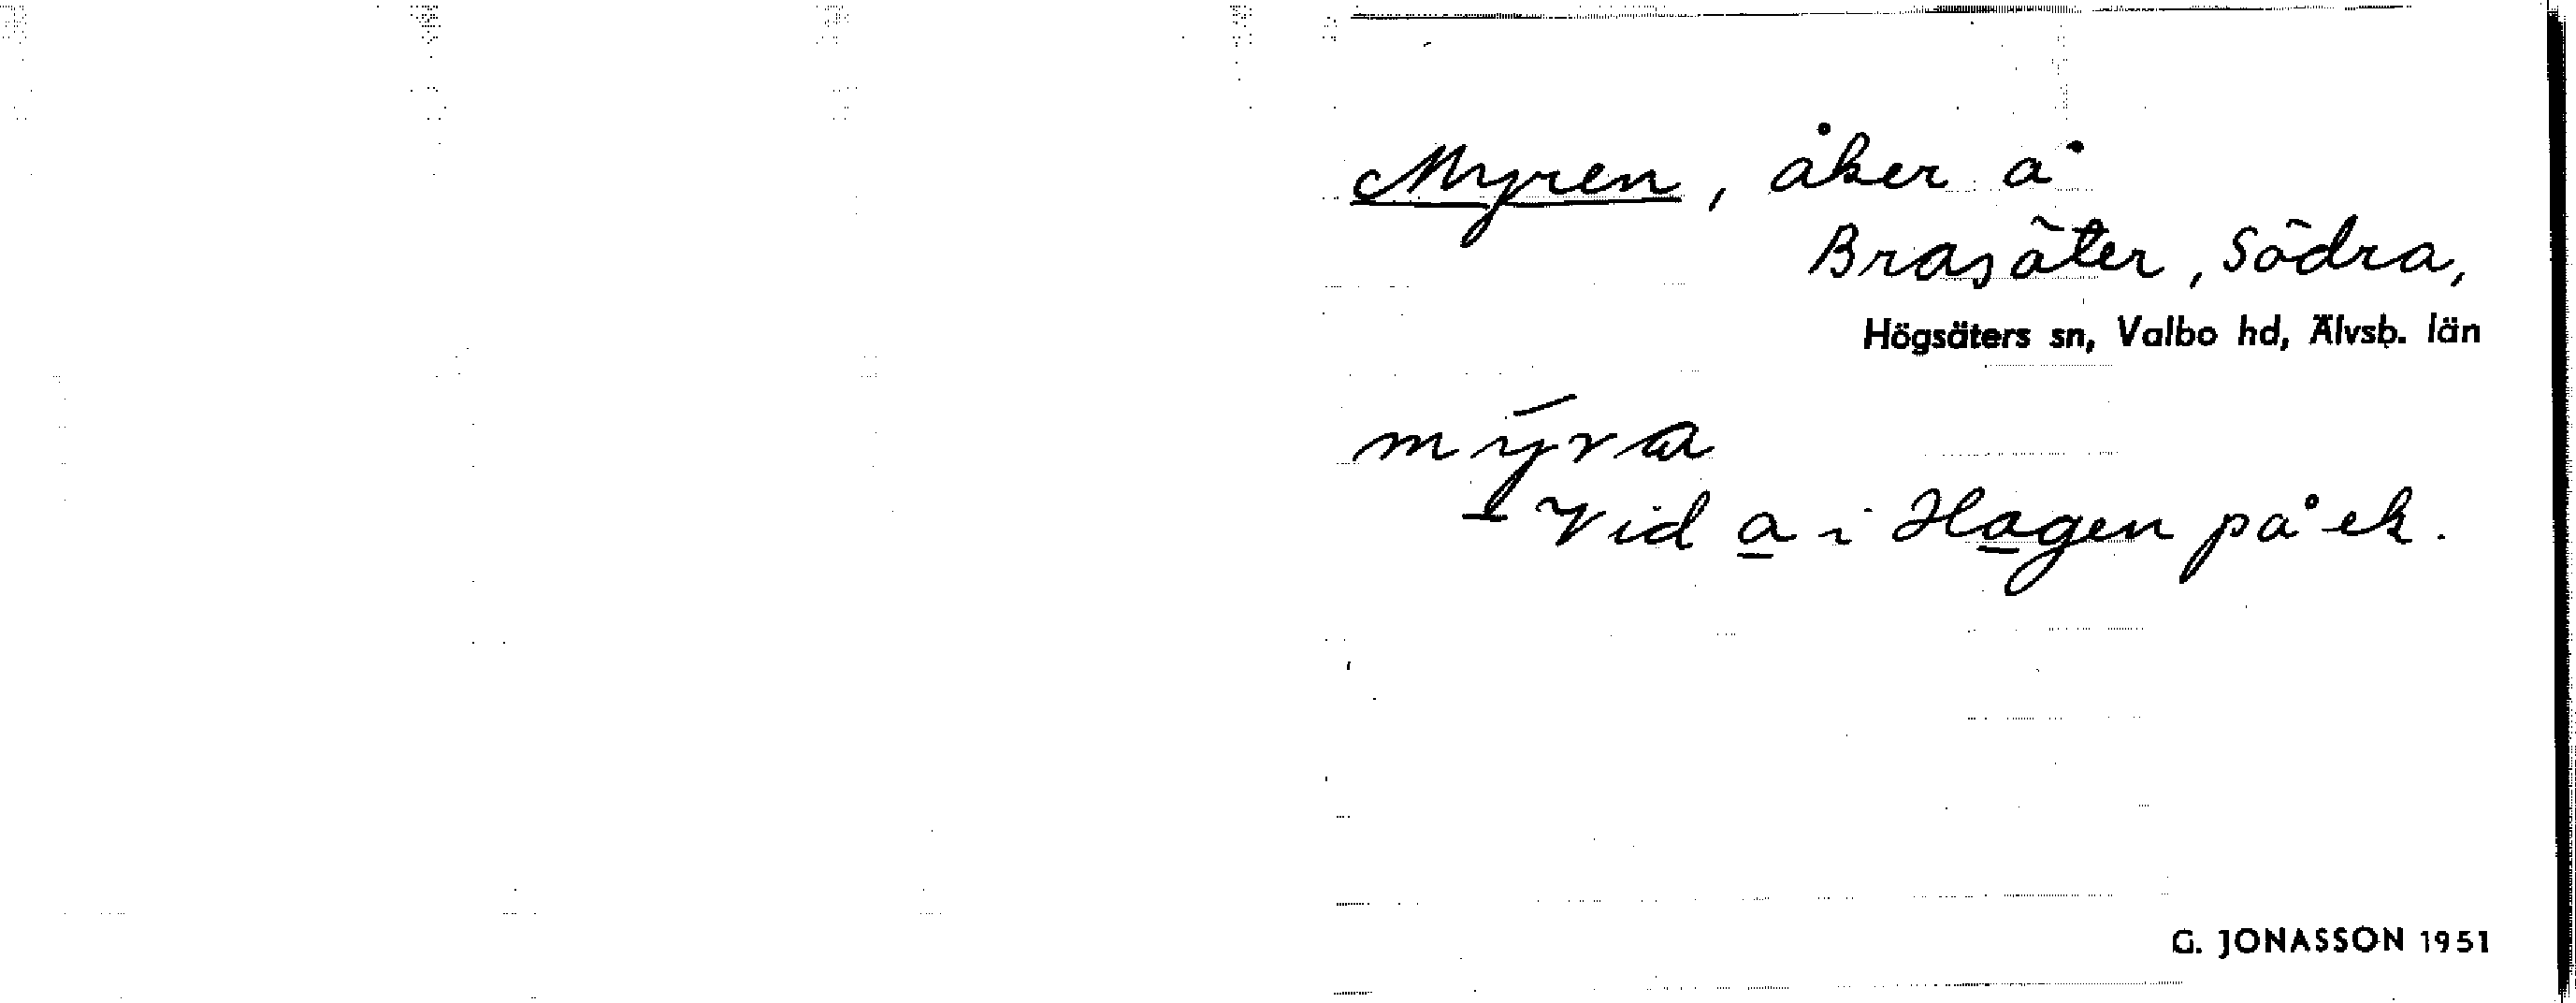 Myren, åker å
Brasäter, Södra,
Högsäters sn, Valbo hd, Älvsb. län
mýra
Vid a i Hagen på ek.
G. JONASSON 1951